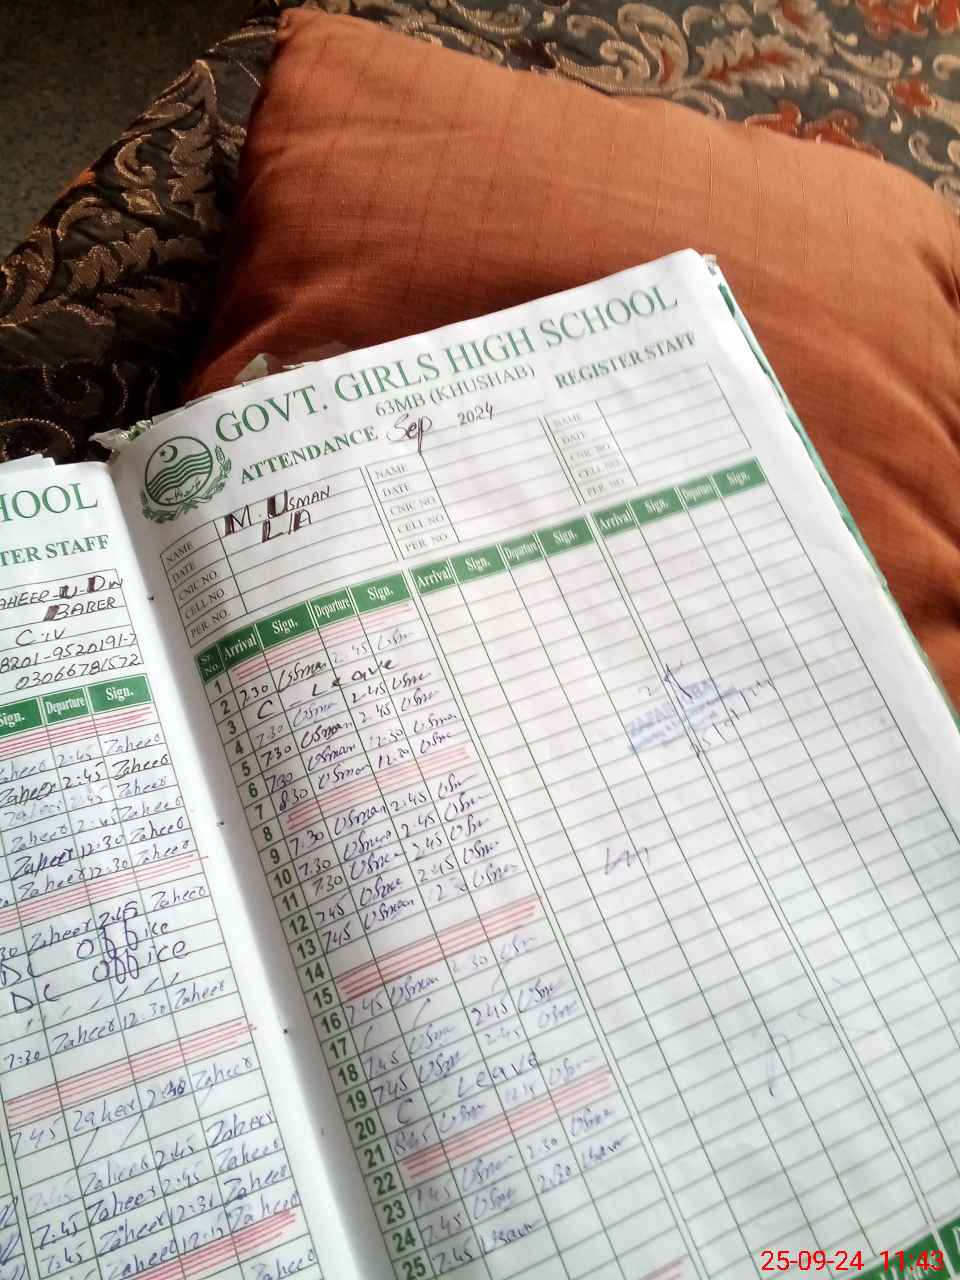 GOVT. GIRLS HIGH SCHOOL
63MB (KHUSHAB)
ATTENDANCE Sep 2024 REGISTER STAFF
NAME M. USMAN NAME NAME
DATE L/A DATE DATE
CNIC NO CNIC NO. CNIC NO.
CELL NO CELL NO. CELL NO.
PER NO. PER NO. PER NO.
Sr. No. Arrival Sign. Departure Sign. Arrival Sign. Departure Sign. Arrival Sign. Departure Sign.
1
2 7.30 Usman 2.45 Usman
3 C Leave
4 7.30 Usman 2.45 Usman
5 7.30 Usman 2.45 Usman
6 7.30 Usman 12.30 Usman
7 8.30 Usman 12.30 Usman
8
9 7.30 Usman 2.45 Usman
10 7.30 Usman 2.45 Usman
11 7.30 Usman 2.45 Usman
12 7.45 Usman 2.45 Usman
13 7.45 Usman 12.30 Usman
14
15
16 7.45 Usman 2.30 Usman
17
18 7.45 Usman 2.45 Usman
19 7.45 Usman 2.45 Usman
20 C Leave
21 8.45 Usman 12.15 Usman
22
23 7.45 Usman 2.30 Usman
24 7.45 Usman 2.30 Usman
25 7.45 Usman
HOOL
TER STAFF
AHEER-U-DIN
BABER
C.IV
8201-9520191-7
03066781572
Sign. Departure Sign.
Zaheer 2:45 Zaheer
Zaheer 2:45 Zaheer
Zaheer 2:45 Zaheer
Zaheer 2:45 Zaheer
Zaheer 12:30 Zaheer
Zaheer 12:30 Zaheer
30 Zaheer 2:45 Zaheer
DC Office
DC Office
7:30 Zaheer 12:30 Zaheer
7 45 Zaheer 2:30 Zaheer
7:45 Zaheer 2:45 Zaheer
7:45 Zaheer 2:45 Zaheer
7:45 Zaheer 12:31 Zaheer
Zaheer 12:15 Zaheer
25-09-24 11:43